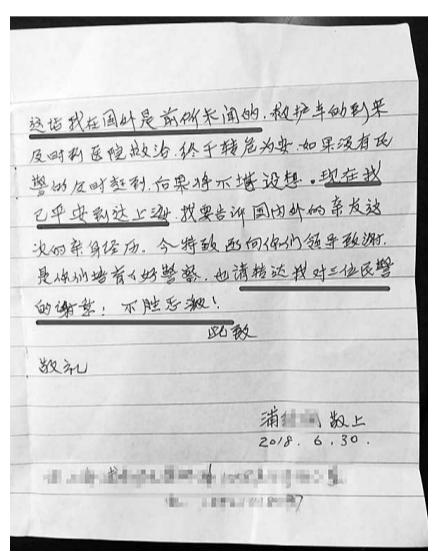 这话我在国外是前所未闻的.救护车的到来
及时到医院救治.终于转危为安.如果没有民
警的及时赶到.后果将不堪设想。现在我
已平安到达上海.我要告诉国内外的亲友这
次的亲身经历.今特致函向你们领导致谢.
是你们培育了好警察.也请转达我对三位民警
的谢意!不胜感激!
此致
敬礼
浦 敬上
2018.6.30.